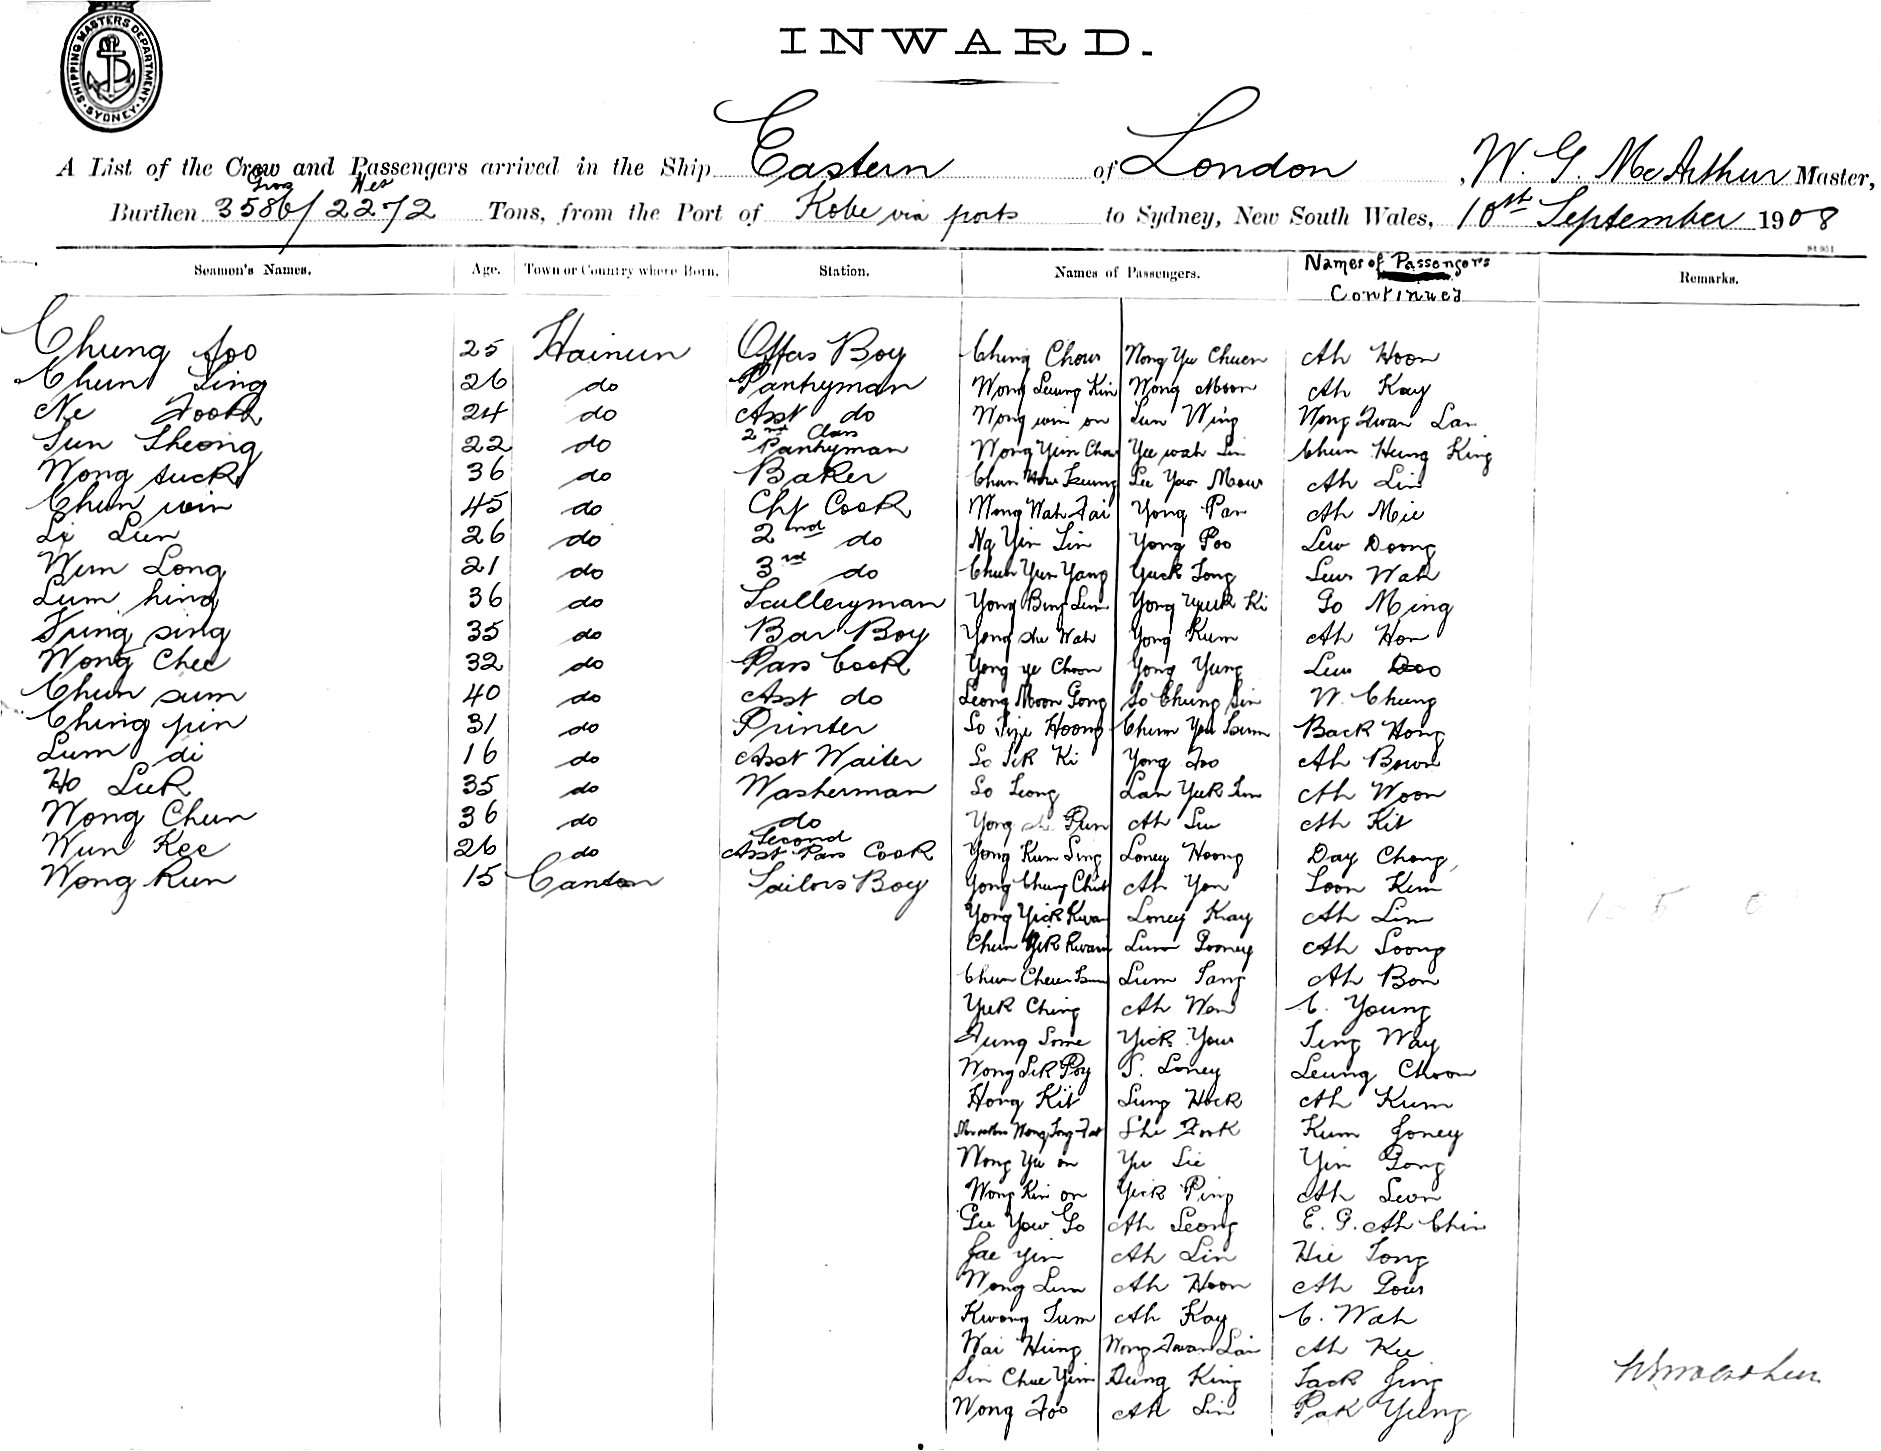 SHIPPING MASTERS DEPARTMENT SYDNEY
INWARD.
A List of the Crew and Passengers arrived in the Ship Eastern of London, W. G. McArthur Master,
Gross Net
Burthen 3586/2272 Tons, from the Port of Kobe via ports to Sydney, New South Wales, 10th September 1908
Seamen's Names. Age. Town or Country where Born. Station. Names of Passengers. Names of Passengers Continued Remarks.
Chung foo 25 Hainun Offas Boy Ching Chow Wong Yu Chuen Ah Hoon
Chun Ling 26 do Pantryman Wong Leung Kin Wong Moon Ah Kay
Ne Fook 24 do Asst do Wong win on Lun Wing Wong Kwan Lan
Sun Sheong 22 do 2nd Class Pantryman Wong Yun Chow Yee wah Lin Chun Hung King
Wong suck 36 do Baker Chan How Leung Lee Yow Mow Ah Lin
Chun win 45 do Chf Cook Wong Wah Fai Yong Pan Ah Mie
Li Lun 26 do 2nd do Ng Yin Lin Yong Poo Lew Doong
Wun Long 21 do 3rd do Chun Yun Yang Yuck Tong Lew Wah
Lum hing 36 do Sculleryman Yong Bing Lum Yong Yuck Ki Go Ming
Fung sing 35 do Bar Boy Yong she Wah Yong Kum Ah Hon
Wong Chee 32 do Pass Cook Yong ye Choon Yong Yung Lew
Chun sum 40 do Asst do Leong Moon Gong So Chung Sin W. Chung
Ching yin 31 do Printer So Size Hoong Chum You Back Hong
Lum di 16 do Asst Waiter So Sik Ki Yong Foo Ah Bown
Ho Luk 35 do Washerman So Leong Lan Yuk Lun Ah Woon
Wong Chun 36 do do Yong Pun Ah Liu Ah Kit
Wun Kee 26 do Second Asst Pass Cook Yong Kum Sing Loney Hoong Day Chong,
Wong Kun 15 Canton Sailors Boy Yong Chung Ah Yon Loon Kim
Yong Yick Kwan Loney Kay Ah Lim
Chun Yik Kwan Lum Gooney Ah Loong
Chun Cheun Lum Tang Ah Bon
Yuk Ching Ah Wan C. Young
Fung Some Yick Yow Ting Way
Wong Sik Poy S. Loney Leung Choon
Hong Kit Lung Hock Ah Kum
She Fook Kum Joney
Wong Yu on Yu Lie Yin Gong
Wong Kin on Yick Ping Ah Leon
Gee Yow Go Ah Leong E. G. Ah Chin
Jae yin Ah Lin Hie Tong
Wong Lum Ah Hoon Ah Gow
Kwong Tum Ah Kay C. Wah
Wai Hing Wong Kwan Lan Ah Kee
Sin Chue Yim Hung King Jack Jing
Wong Foo Ah Lin Pak Yung